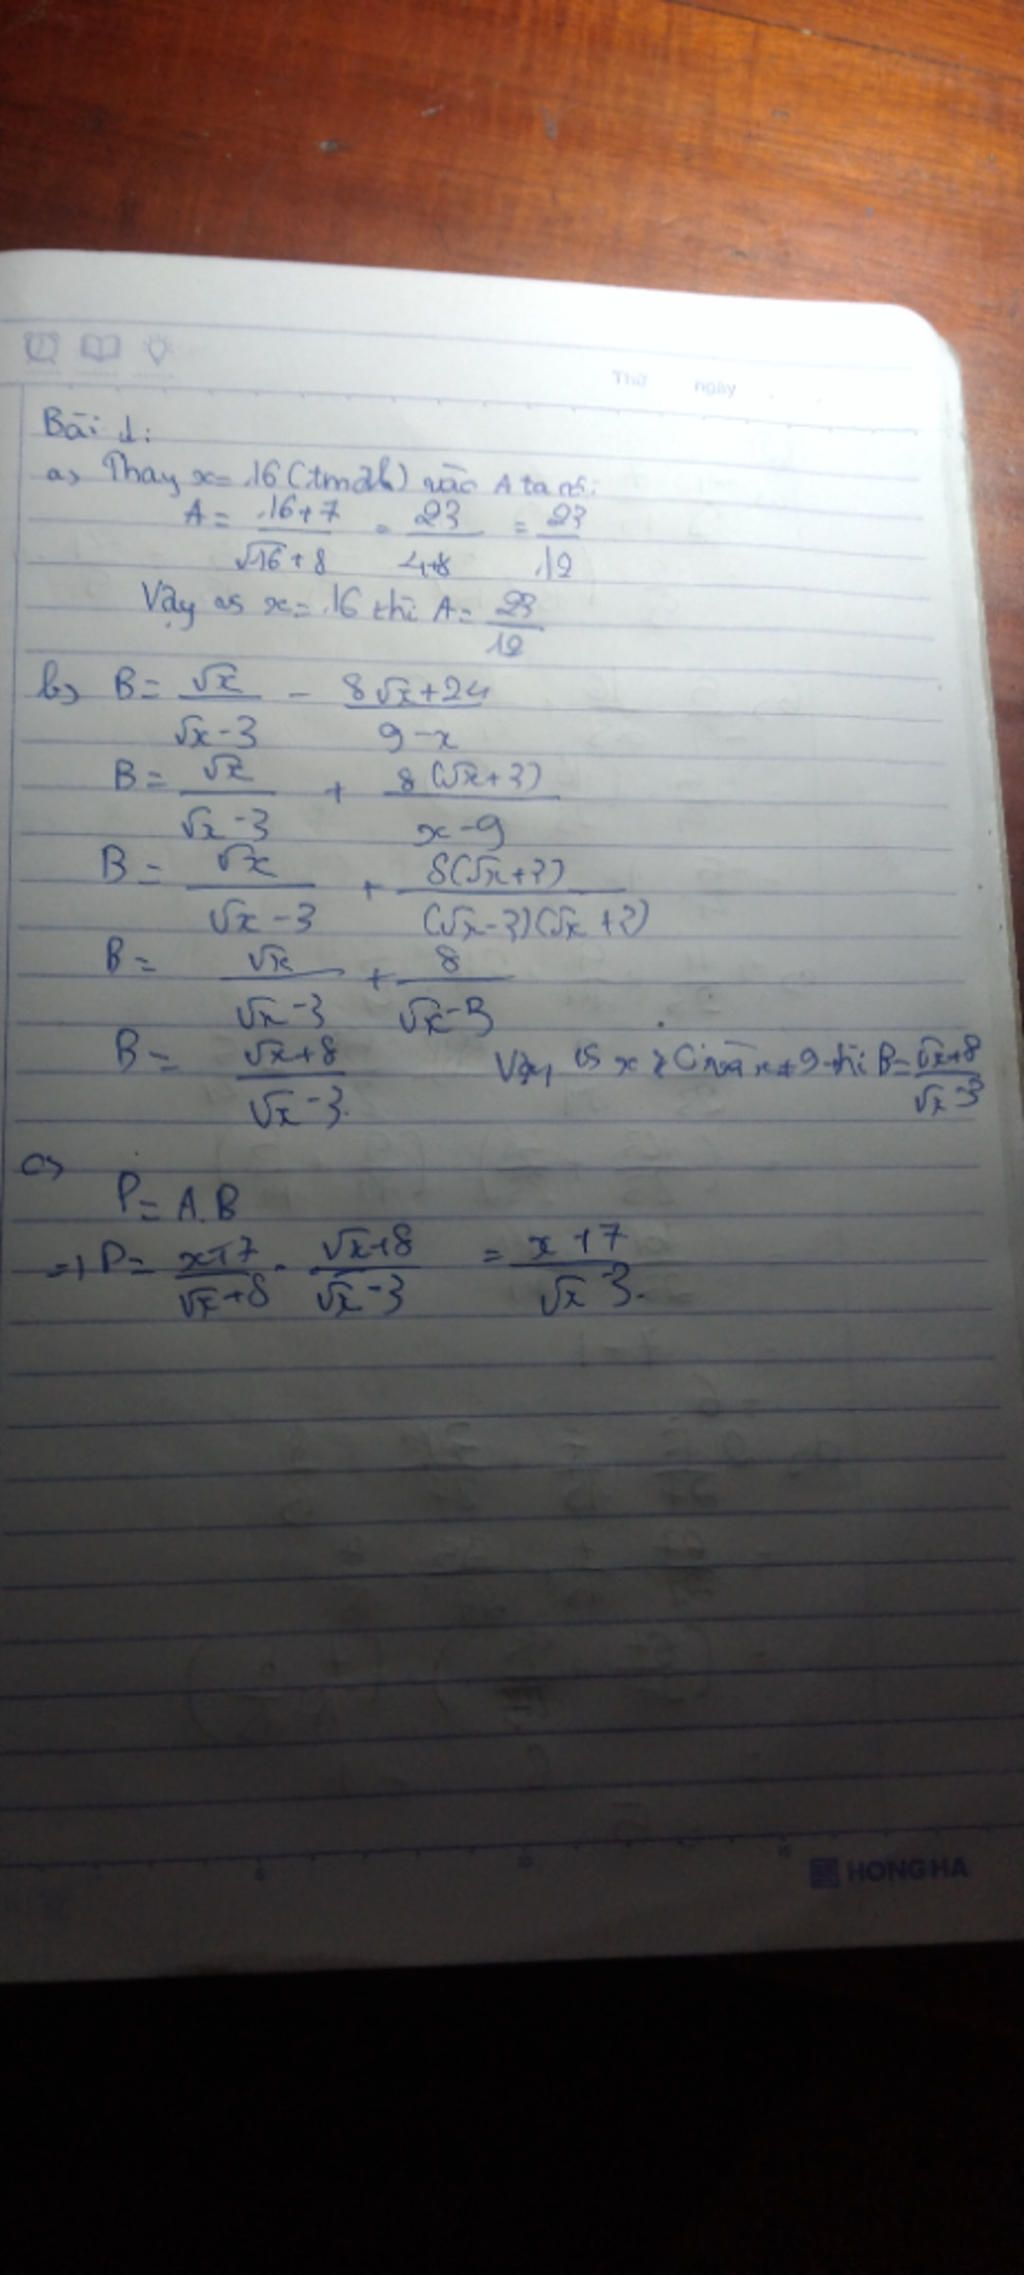 Thứ ngày
Bài 1:
a, Thay x = 16 (tmđk) vào A ta có:
A = 16+7/√16+8 = 23/4+8 = 23/12
Vậy với x = 16 thì A = 23/12
b, B = √x/√x-3 - 8√x+24/9-x
B = √x/√x-3 + 8(√x+3)/x-9
B = √x/√x-3 + 8(√x+3)/(√x-3)(√x+3)
B = √x/√x-3 + 8/√x-3
B = √x+8/√x-3. Vậy với x ≥ 0 và x ≠ 9 thì B = √x+8/√x-3
c,
P = A.B
=> P = x+7/√x+8 . √x+8/√x-3 = x+7/√x-3.
5 10 15
HONG HA